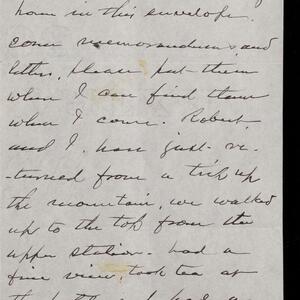 home in this envelope.
some memorandums, and
letters, please put them
where I can find them
when I come. Robert
and I. have just re-
-turned from a trip up
the mountain, we walked
up to the top from the
upper station. had a
fine view, took tea at